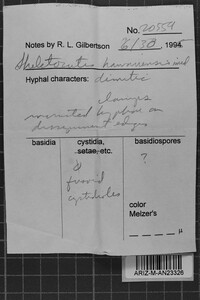 No. 20559
Notes by R. L. Gilbertson 6/30, 1995
Skeletocutis
Hyphal characters: dimitic
clamps
encrusted hyphae on
dissepiment edges
basidia
cystidia,
setae, etc.
basidiospores
?
fusoid
cystidioles
color
Melzer's
µ
ARIZ-M-AN23326